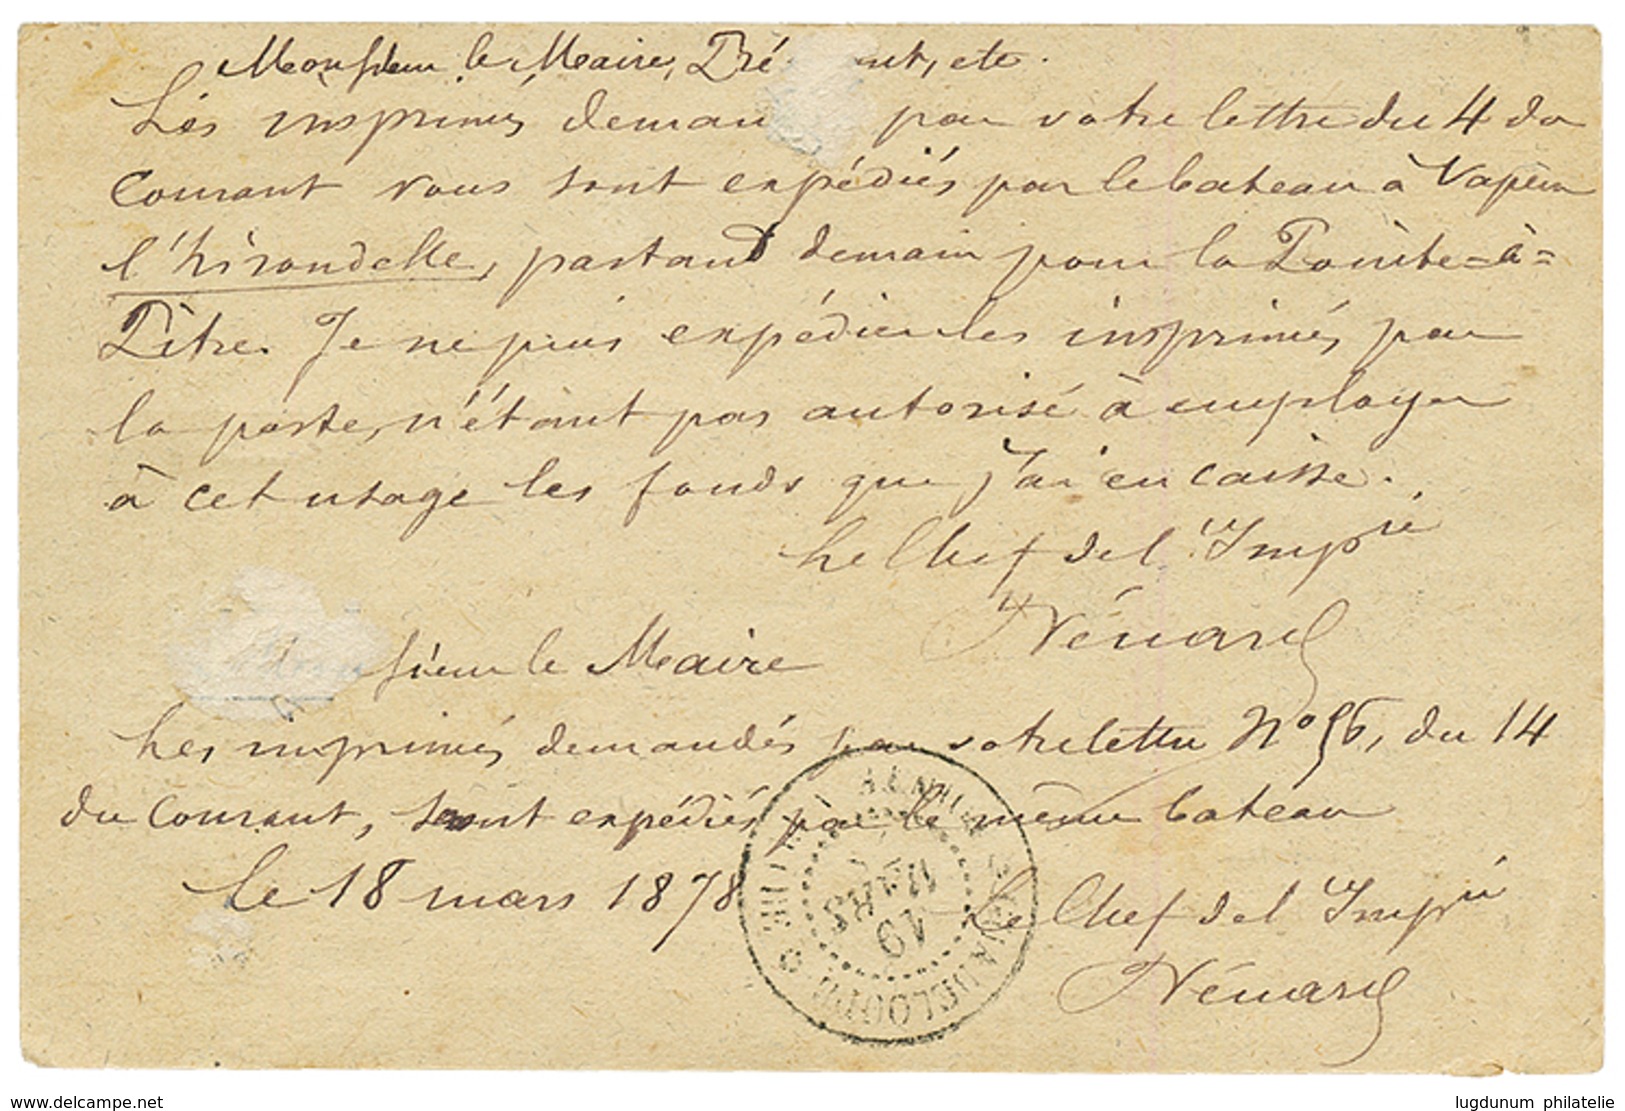 Monsieur le Maire, Pré ent, etc.
Les imprimés deman par votre lettre du 4 du
Courant vous sont expédiés par le bateau à Vapeur
l'hirondelle, partant demain pour la Pointe-à-
Pitre. Je ne puis expédier les imprimés par
la poste, n'étant pas autorisé à employer
à cet usage les fonds que j'ai en caisse.
Le Chef de l'Impie
Nénard
sieur le Maire
Les imprimés demandés par votre lettre No 56, du 14
du Courant, sont expédiés par le même bateau
le 18 mars 1878
Le Chef de l'Impie
Nénard
19
MARS
GUADELOUPE
www.delcampe.net
lugdunum philatelie